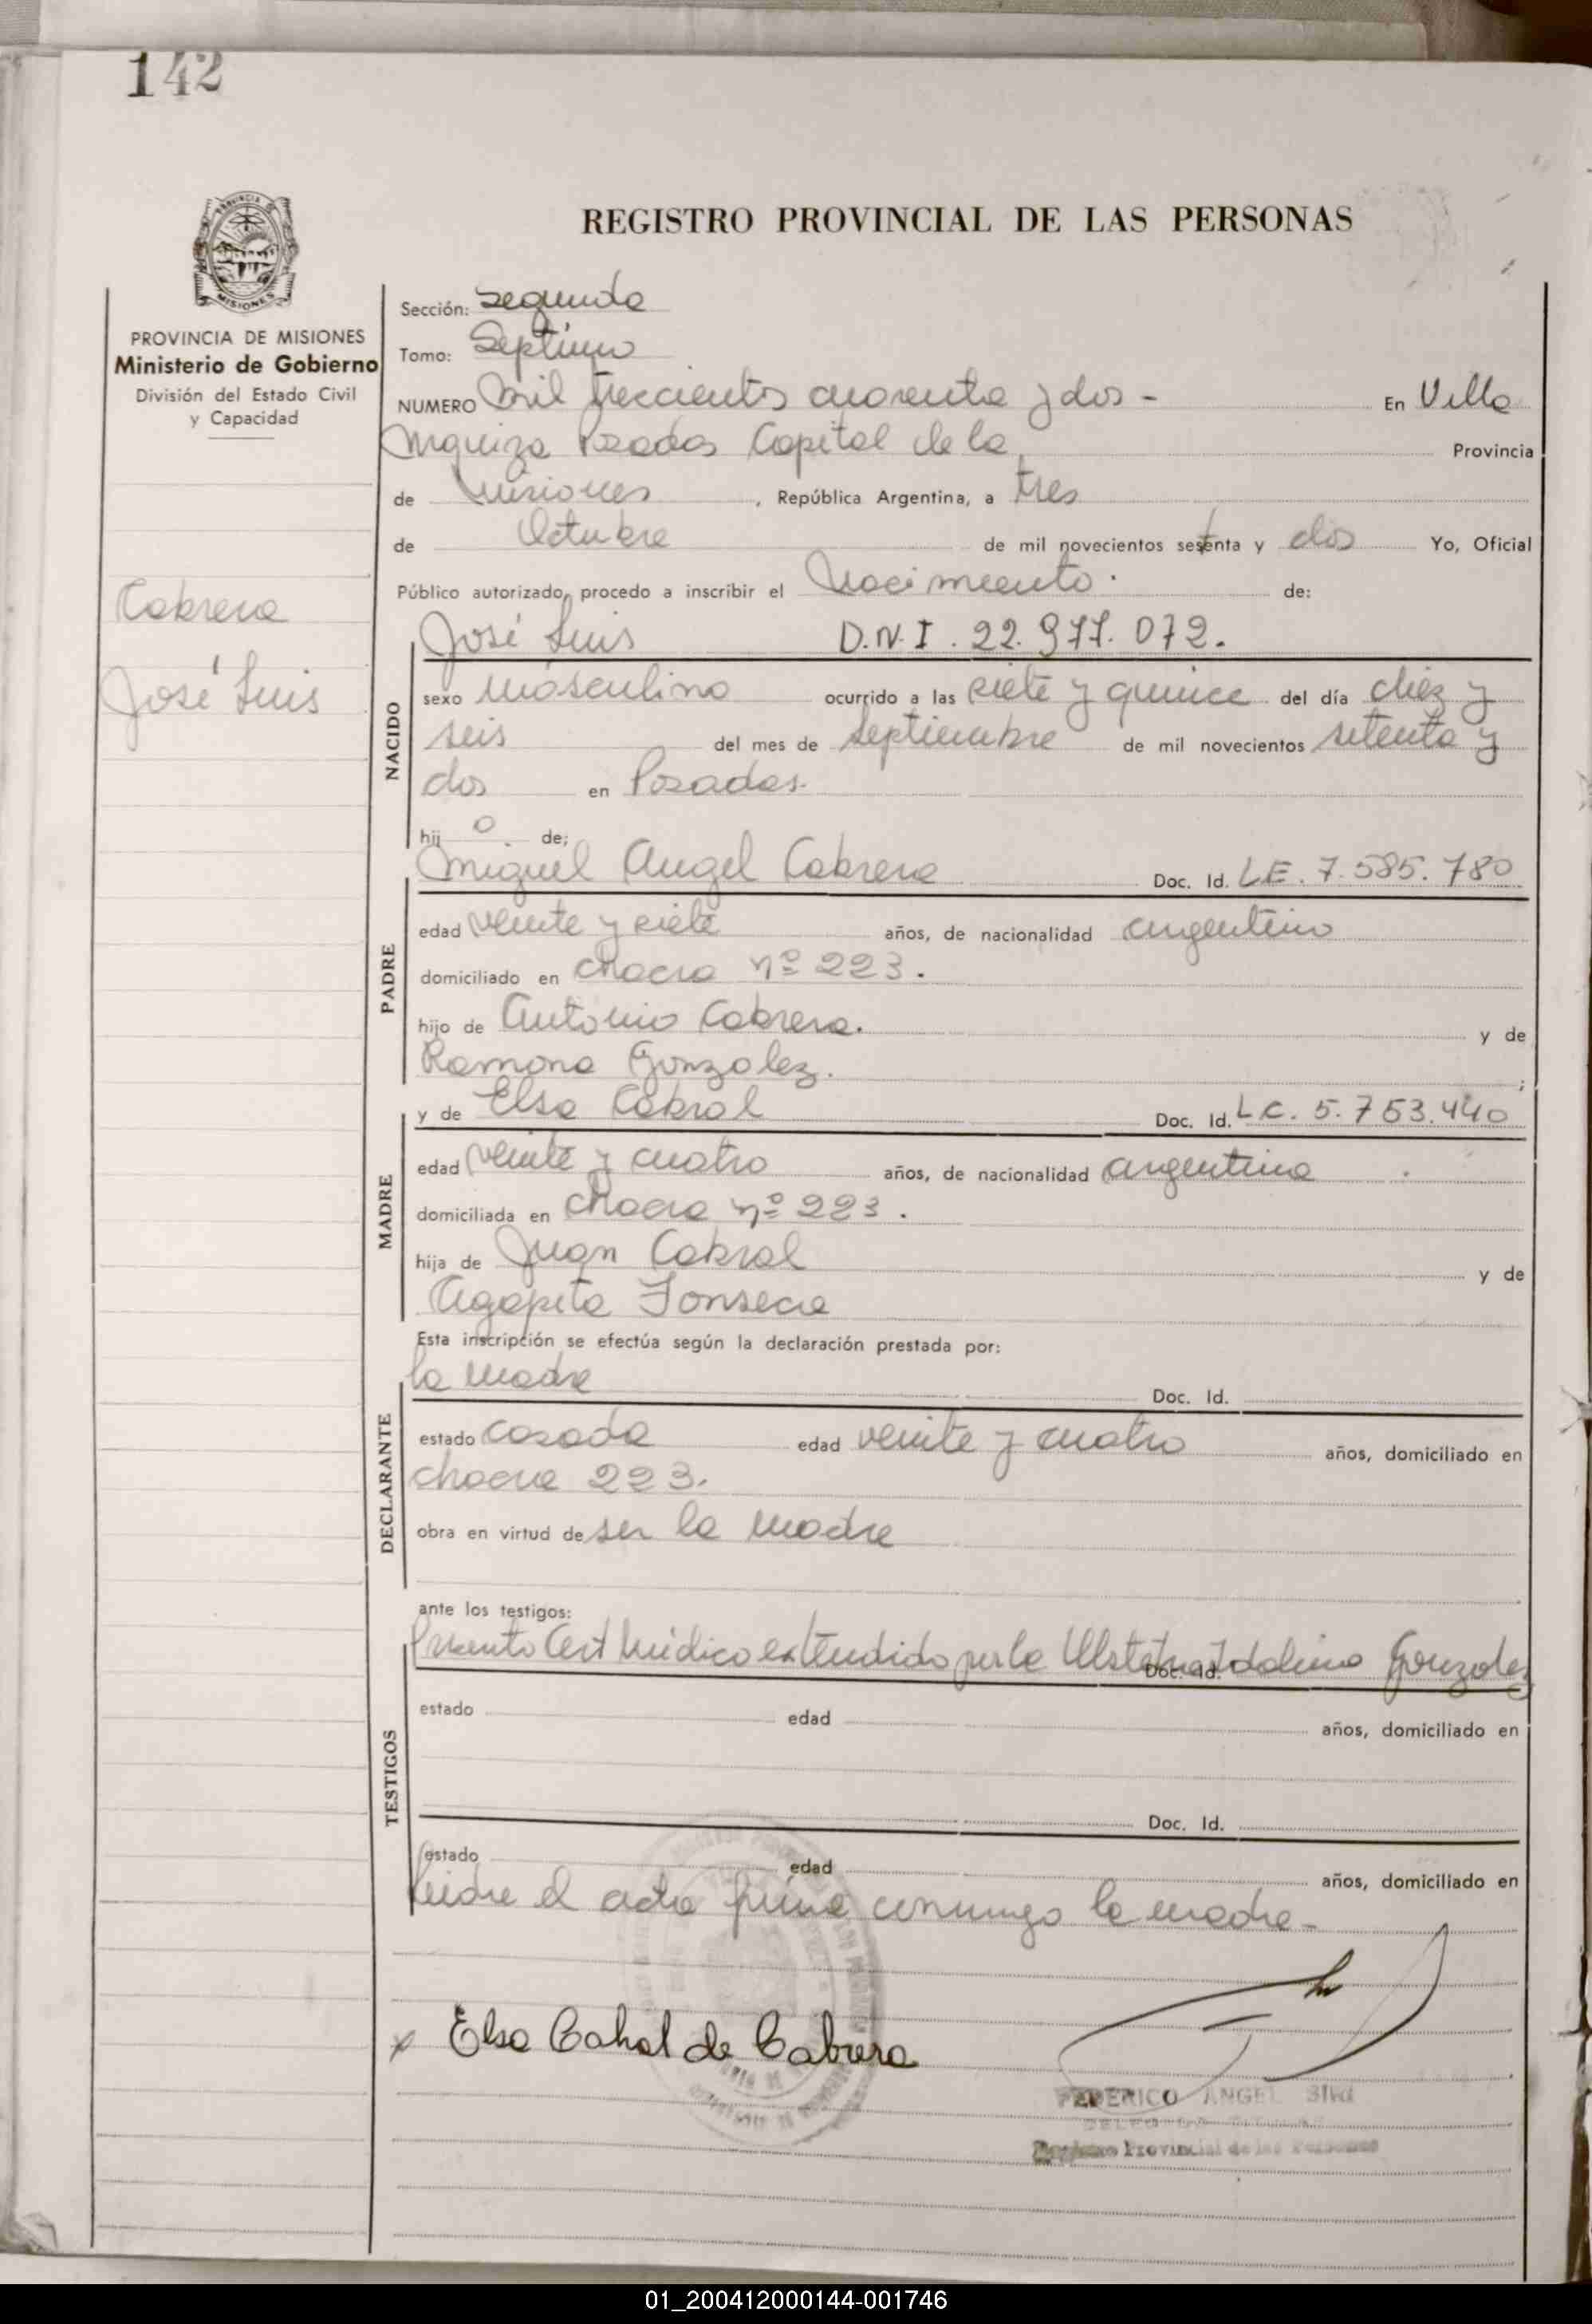 142
REGISTRO PROVINCIAL DE LAS PERSONAS
PROVINCIA DE MISIONES
MISIONES
PROVINCIA DE MISIONES
Ministerio de Gobierno
División del Estado Civil
y Capacidad
Cabrera
José Luis
Sección: Segunda
Tomo: Septimo
NUMERO Mil trescientos cuarenta y dos - En Villa
Urquiza Posadas Capital de la Provincia
de Misiones, República Argentina, a tres
de Octubre de mil novecientos setenta y dos Yo, Oficial
Público autorizado, procedo a inscribir el Nacimiento. de:
José Luis D.N.I. 22.977.072.
NACIDO
sexo masculino ocurrido a las siete y quince del día diez y
seis del mes de septiembre de mil novecientos setenta y
dos en Posadas.
hij o de;
Miguel Angel Cabrera Doc. Id. L.E. 7.585.780
PADRE
edad veinte y siete años, de nacionalidad argentino
domiciliado en chacra nº 223.
hijo de Antonio Cabrera. y de
Ramona Gonzalez. ;
y de Elsa Cabral Doc. Id. L.C. 5.753.440
MADRE
edad veinte y cuatro años, de nacionalidad argentina
domiciliada en chacra nº 223.
hija de Juan Cabral y de
Agapita Fonseca
Esta inscripción se efectúa según la declaración prestada por:
la madre Doc. Id.
DECLARANTE
estado casada edad veinte y cuatro años, domiciliado en
chacra 223.
obra en virtud de ser la madre
ante los testigos:
Presento Cert Médico extendido por la Obstetra Idalina Gonzalez
Doc. Id.
TESTIGOS
estado edad años, domiciliado en
Doc. Id.
estado edad años, domiciliado en
Leídre el acta firma conmigo la madre-
x Elsa Cabral de Cabrera
FEDERICO ANGEL
Registro Provincial de las Personas
01_200412000144-001746